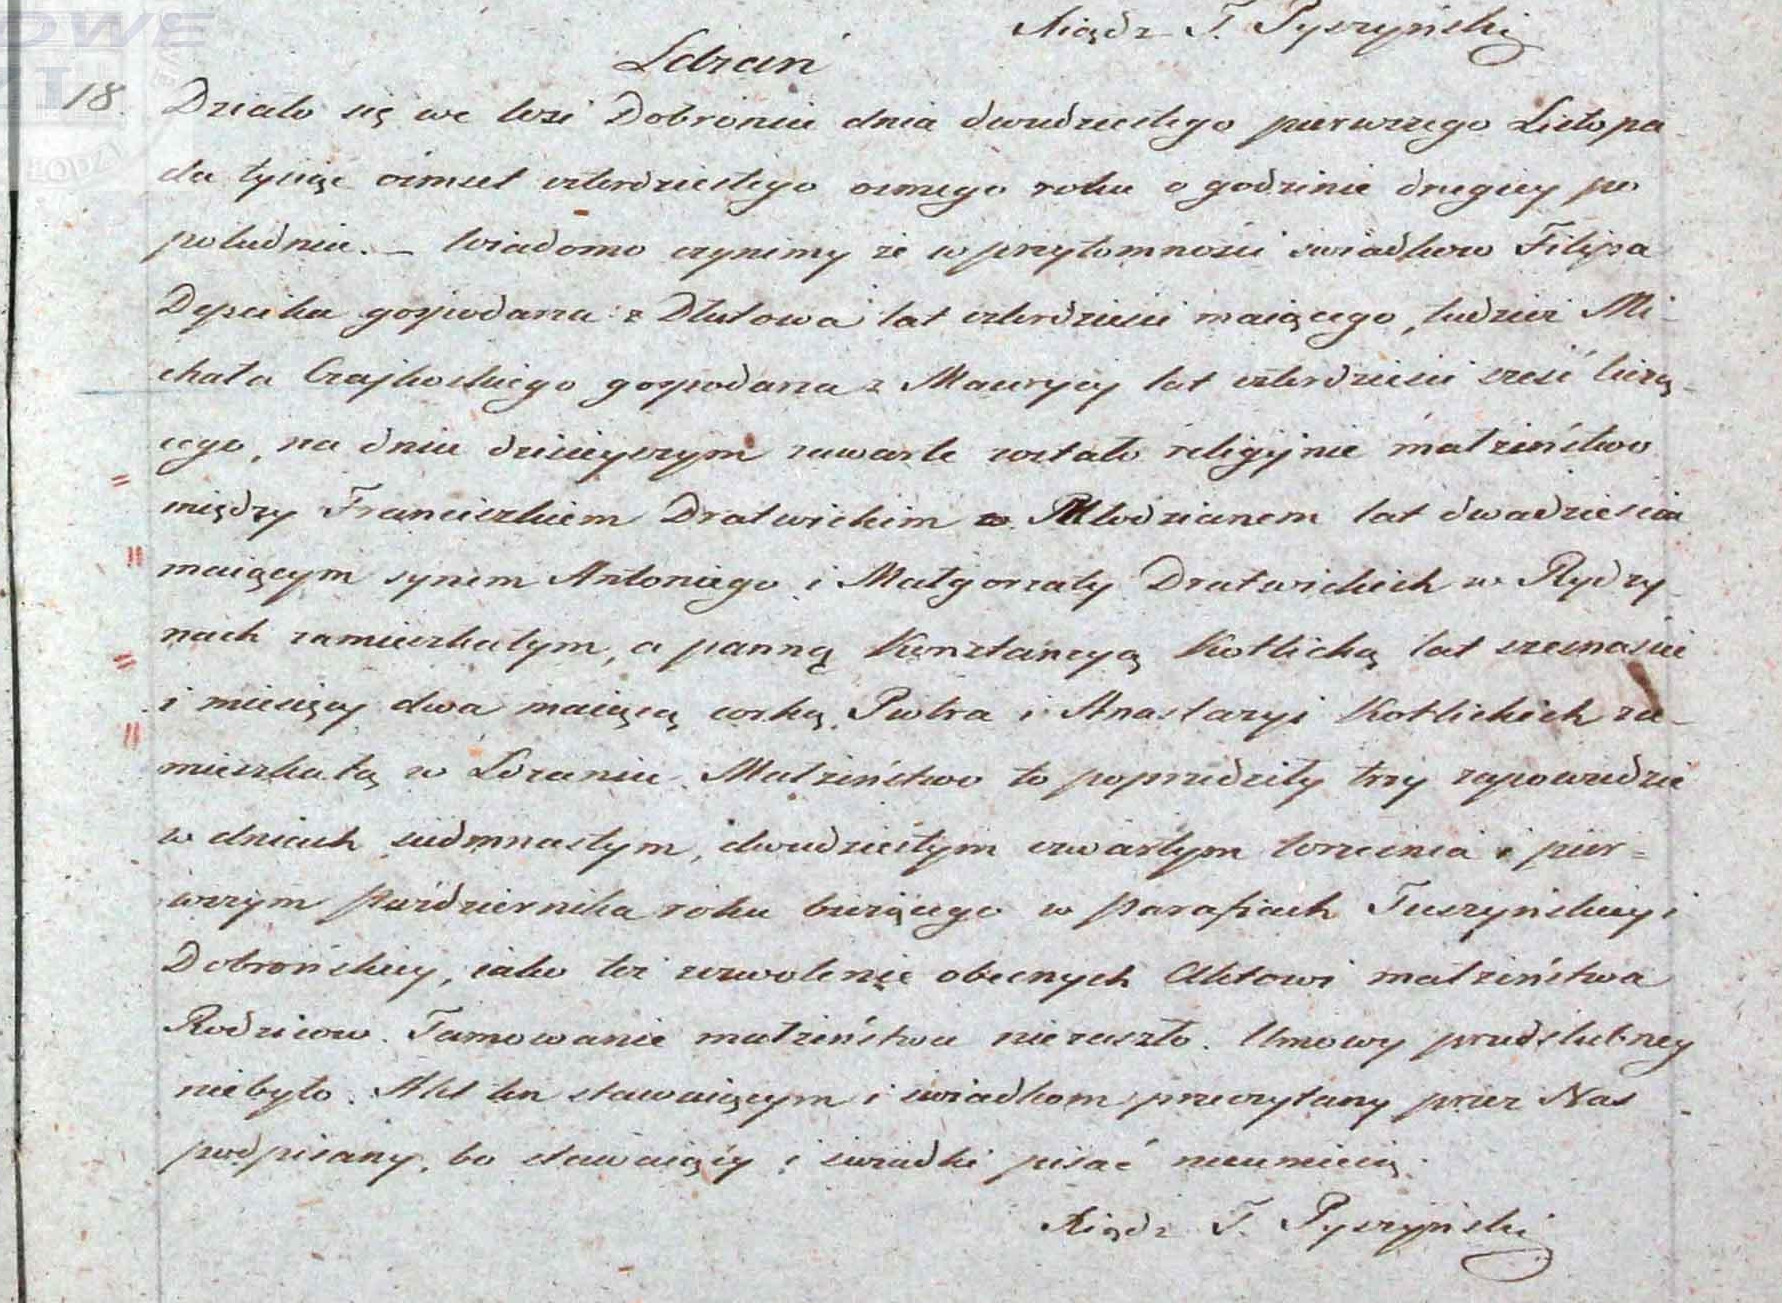 Xiądz T. Pyszyński
Ldzań
18. Działo się we Wsi Dobroniu dnia dwudziestego pierwszego Listopa-
da tysiąc ośmset czterdziestego osmego roku o godzinie drugiey po
południu. – Wiadomo czynimy że w przytomności świadkow Filipa
Depcika gospodarza z Dłutowa lat czterdzieści maiącego, tudzież Mi-
chała Czajkoskiego gospodarza z Maurycy lat czterdzieści sześć liczą-
cego, na dniu dzisieyszym zawarte zostało religijnie małżeństwo
między Franciszkiem Dratwickim Młodzianem lat dwadzieścia
maiącym synem Antoniego i Małgorzaty Dratwickich w Rydzy-
nach zamieszkałym, a panną Konstancyą Kotlicką lat szesnaście
i miesięcy dwa maiącą corką Piotra i Anastazyi Kotlickich za-
mieszkałą w Ldzaniu. Małżeństwo to poprzedziły trzy zapowiedzie
w dniach siedmnastym, dwudziestym czwartym Września i pier=
wszym Października roku bieżącego w parafiach Tuszyńskiey i
Dobrońskiey, iako też zezwolenie obecnych Aktowi małżeństwa
Rodzicow. Tamowanie małżeństwa niezaszło. Umowy przedślubney
niebyło. Akt ten stawaiącym i świadkom przeczytany przez Nas
podpisany, bo stawaiący i świadki pisać nieumieią.
Xiądz T. Pyszyński